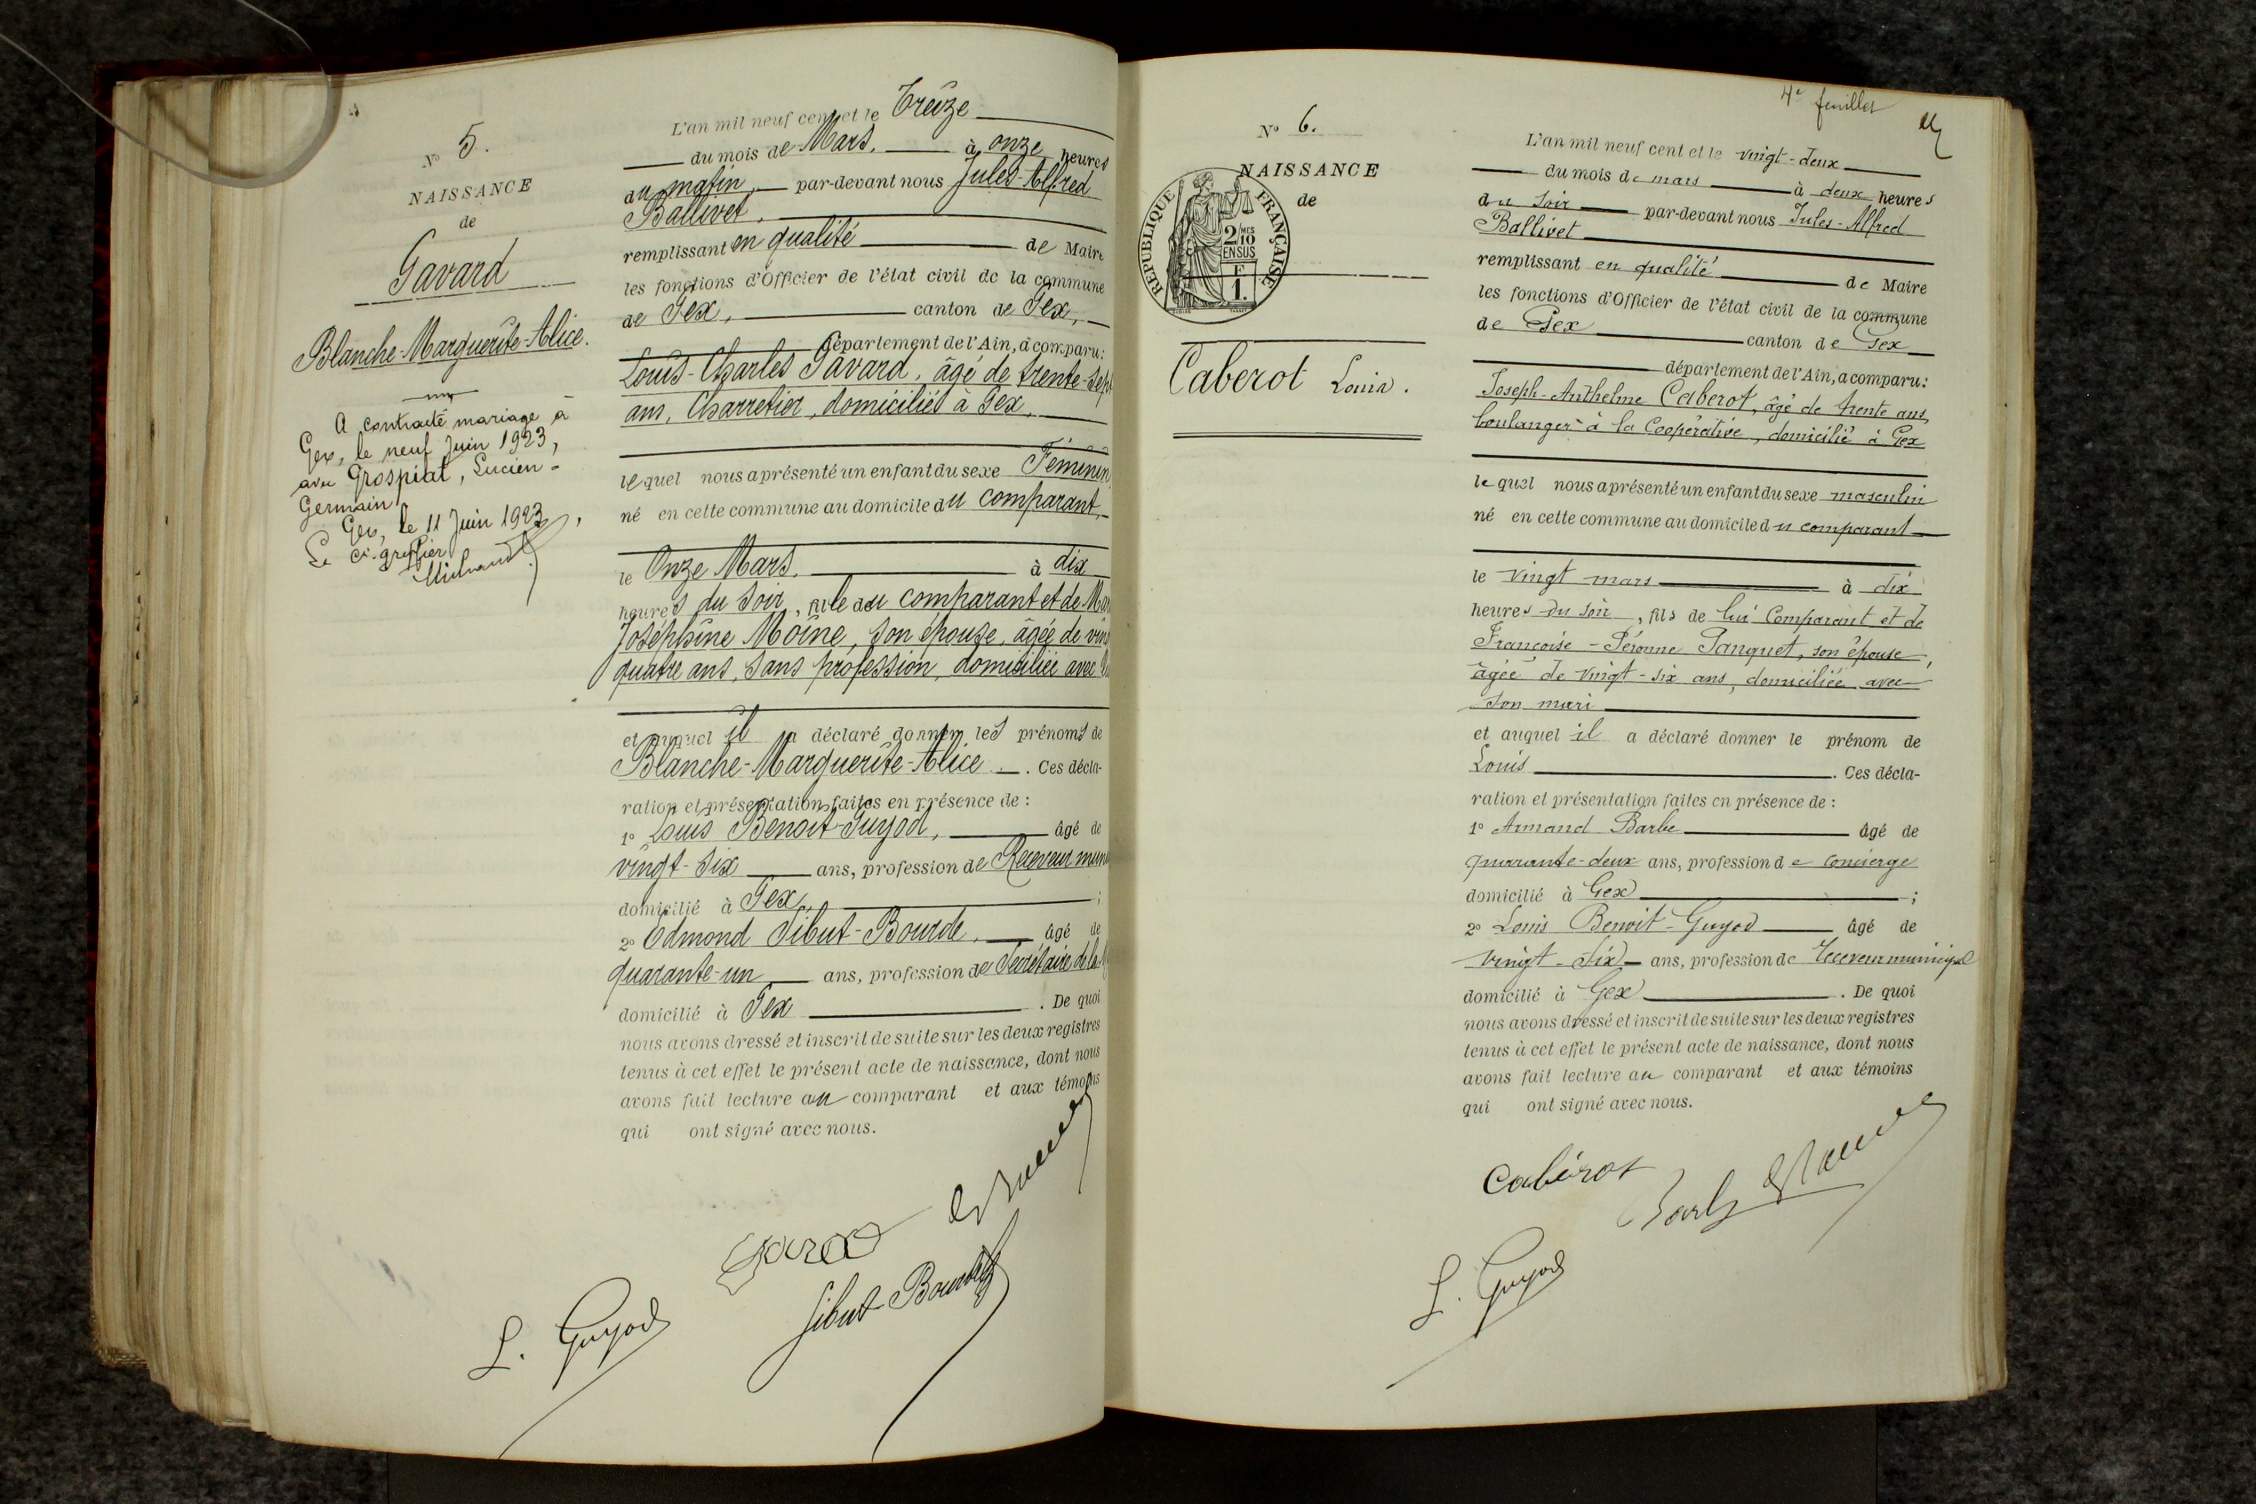 No 5.
NAISSANCE
de
Gavard
Blanche-Marguerite-Alice.
A contracté mariage à
Gex, le neuf Juin 1923,
avec Grospiat, Lucien-
Germain
Gex, le 11 Juin 1923,
Le cs. greffier
L'an mil neuf cent et le Treize
du mois de Mars, à onze heures
du matin, par-devant nous Jules-Alfred
Ballivet,
remplissant en qualité de Maire
les fonctions d'Officier de l'état civil de la commune
de Gex, canton de Gex,
département de l'Ain, a comparu:
Louis-Charles Gavard, âgé de trente-sept
ans, Charretier, domicilié à Gex,
lequel nous a présenté un enfant du sexe Féminin,
né en cette commune au domicile du comparant,
le Onze Mars, à dix
heures du soir, fille du comparant et de Mar
Joséphine Moine, son épouse, âgée de vin
quatre ans, sans profession, domiciliée avec
et auquel il a déclaré donner les prénoms de
Blanche-Marguerite-Alice. Ces décla-
ration et présentation faites en présence de :
1o Louis Benoit-Guyod, âgé de
vingt-six ans, profession de Receveur muni
domicilié à Gex, ;
2o Edmond Sibut-Bourde, âgé de
quarante-un ans, profession de Secrétaire de la
domicilié à Gex. De quoi
nous avons dressé et inscrit de suite sur les deux registres
tenus à cet effet le présent acte de naissance, dont nous
avons fait lecture au comparant et aux témoins
qui ont signé avec nous.
Gavard
L. Guyod
Sibut-Bourde
4e feuillet
No 6.
NAISSANCE
de
REPUBLIQUE FRANÇAISE
2/10 MES
EN SUS
F
1.
Caberot Louis.
L'an mil neuf cent et le vingt-deux
du mois de mars à deux heures
du soir par-devant nous Jules-Alfred
Ballivet
remplissant en qualité de Maire
les fonctions d'Officier de l'état civil de la commune
de Gex canton de Gex
département de l'Ain, a comparu:
Joseph-Anthelme Caberot, âgé de trente ans,
boulanger à la Coopérative, domicilié à Gex
lequel nous a présenté un enfant du sexe masculin
né en cette commune au domicile du comparant
le vingt mars à dix
heures du soir, fils de lui Comparant et de
Françoise-Péronne Panquet, son épouse,
âgée de vingt-six ans, domiciliée avec
son mari
et auquel il a déclaré donner le prénom de
Louis. Ces décla-
ration et présentation faites en présence de :
1o Armand Barbe âgé de
quarante-deux ans, profession de concierge
domicilié à Gex ;
2o Louis Benoit-Guyod âgé de
vingt-six ans, profession de receveur municipal
domicilié à Gex. De quoi
nous avons dressé et inscrit de suite sur les deux registres
tenus à cet effet le présent acte de naissance, dont nous
avons fait lecture au comparant et aux témoins
qui ont signé avec nous.
Cabérot
Barbe
L. Guyod